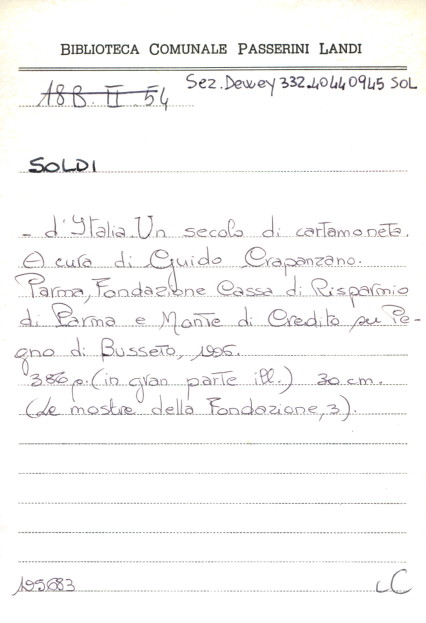 BIBLIOTECA COMUNALE PASSERINI LANDI
18B. II. 54 Sez. Dewey 332.40440945 SOL
SOLDI
- d'Italia. Un secolo di cartamoneta.
A cura di Guido Crapanzano.
Parma, Fondazione Cassa di Risparmio
di Parma e Monte di Credito su Pe-
gno di Busseto, 1996.
386 p. (in gran parte ill.) 30 cm.
(Le mostre della Fondazione, 3).
195683 LC